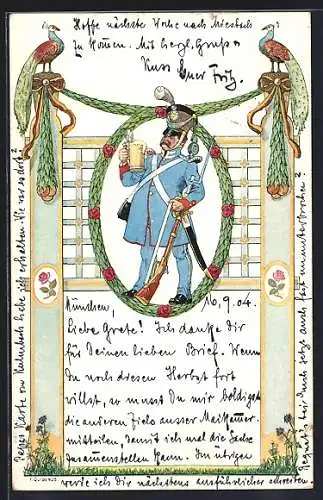 Hoffe nächste Woche nach Miesbach
zu kommen. Mit herzl. Gruss u
Kuss Euer Fritz.
München, 16.9.04.
Liebe Grete! Ich danke Dir
für Deinen lieben Brief. Wenn
Du noch diesen Herbst fort
willst, so musst Du mir baldigst
die anderen Ziele ausser
mitteilen, damit ich mal die Sache
zusammenstellen kann. Im übrigen
werde ich Dir nächstens ausführlicher schreiben.
Deine Karte von Kulmbach habe ich erhalten. Wie war es dort?
Regnet's bei Euch jetzt auch fast ununterbrochen?